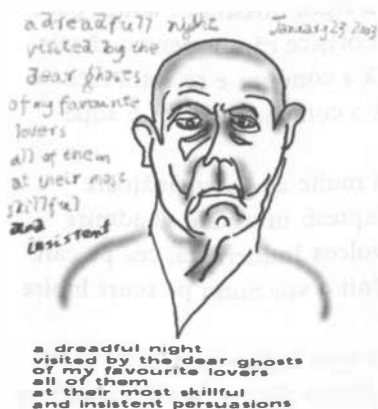 a dreadfull night
January 23, 2003
visited by the
dear ghosts
of my favourite
lovers
all of them
at their most
skillful
and
insistent
a dreadful night
visited by the dear ghosts
of my favourite lovers
all of them
at their most skillful
and insistent persuasions